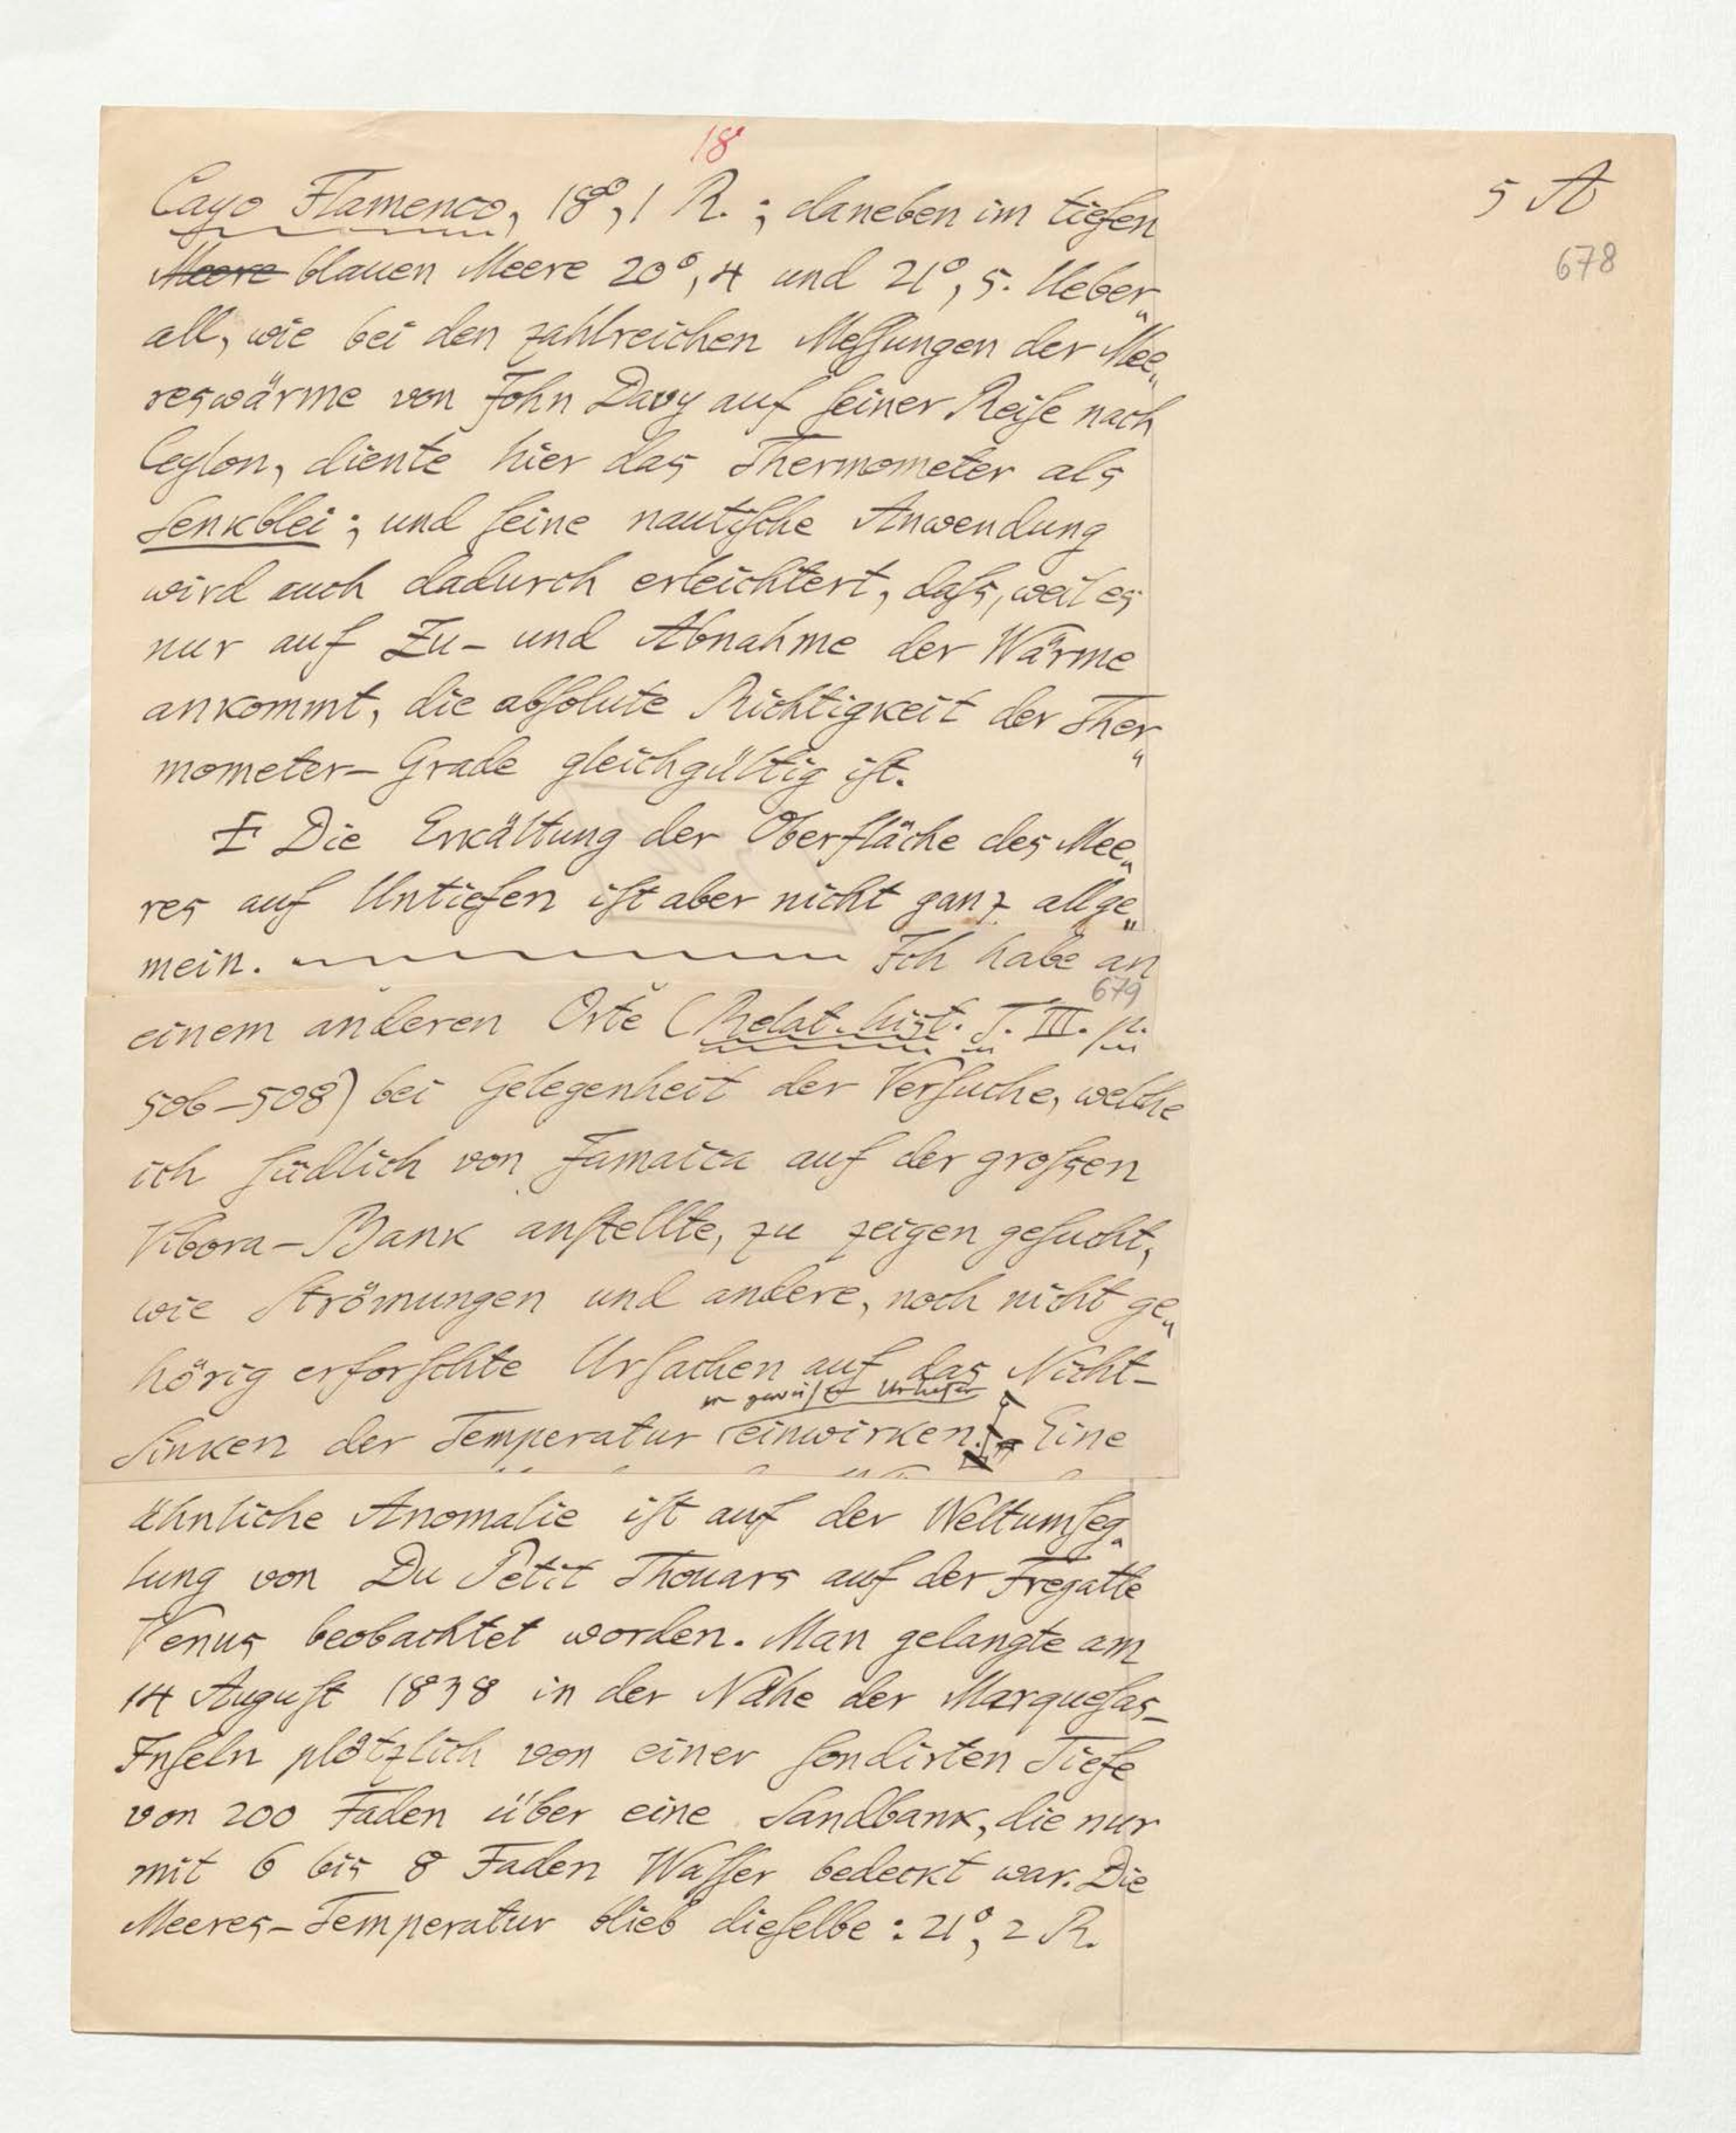 18
5 A
678
Cayo Flamenco, 18°,1 R.; daneben im tiefen
Meere blauen Meere 20°,4 und 21°,5. Ueber„
all, wie bei den zahlreichen Meſſungen der Mee„
reswärme von John Davy auf ſeiner Reiſe nach
Ceylon, diente hier das Thermometer als
Senkblei; und ſeine nautiſche Anwendung
wird auch dadurch erleichtert, daſs, weil es
nur auf Zu- und Abnahme der Wärme
ankommt, die abſolute Richtigkeit der Ther„
mometer-Grade gleichgültig iſt.
Die Erkältung der Oberfläche des Mee„
res auf Untiefen iſt aber nicht ganz allge„
mein. Ich habe an
679
einem anderen Orte (Relat. hist. T. III. p.
506-508) bei Gelegenheit der Verſuche, welche
ich ſüdlich von Jamaica auf der groſsen
Vibora-Bank anſtellte, zu zeigen geſucht,
wie Strömungen und andere, noch nicht ge„
hörig erforſchte Urſachen auf das Nicht-
in gewiſſer Untiefen
Sinken der Temperatur einwirken. Eine
ähnliche Anomalie iſt auf der Weltumſeg„
lung von Du Petit Thouars auf der Fregatte
Venus beobachtet worden. Man gelangte am
14 Auguſt 1838 in der Nähe der Marqueſas-
Inſeln plötzlich von einer ſondirten Tiefe
von 200 Faden über eine Sandbank, die nur
mit 6 bis 8 Faden Waſſer bedeckt war. Die
Meeres-Temperatur blieb dieſelbe: 21°,2 R.